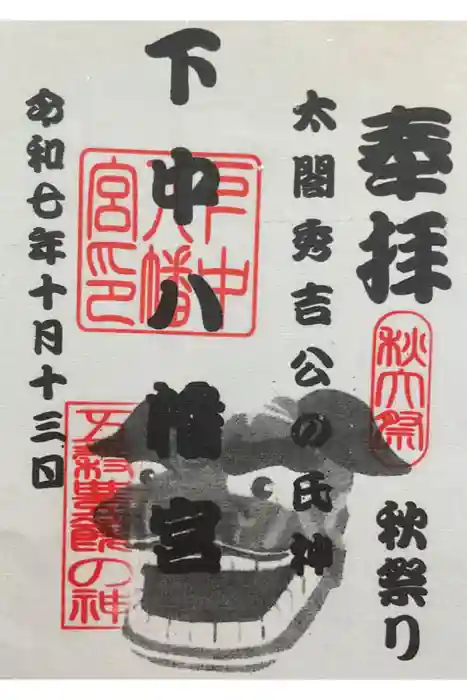 奉拝
秋大祭
秋祭り
太閤秀吉公の氏神
下中八幡宮
下中八幡宮印
令和七年十月十三日